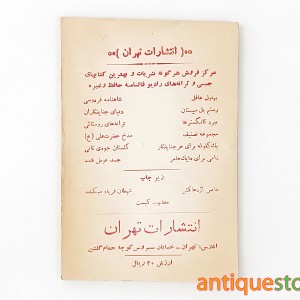 ( انتشارات تهران )
مرکز فروش هرگونه نشریات و بهترین کتابهای
جیبی و ترانه‌های رادیو فالنامه حافظ و غیره
بهلول عاقل
شاهنامه فردوسی
رستم یل سیستان
دنیای جنایتکاران
جیره گانگسترها
ترانه‌های روستائی
مجموعه تصنیف
مدح حضرت علی (ع)
یک گلوله برای هر جنایتکار
گلستان
دامی برای مایک هامر
جسد
زیر چاپ
شیطان فریاد میکشد
کیست
انتشارات تهران
آدرس: تهران - خیابان سیروس کوچه حمام گلشن
ارزش ۲۰ ریال
antiquesto